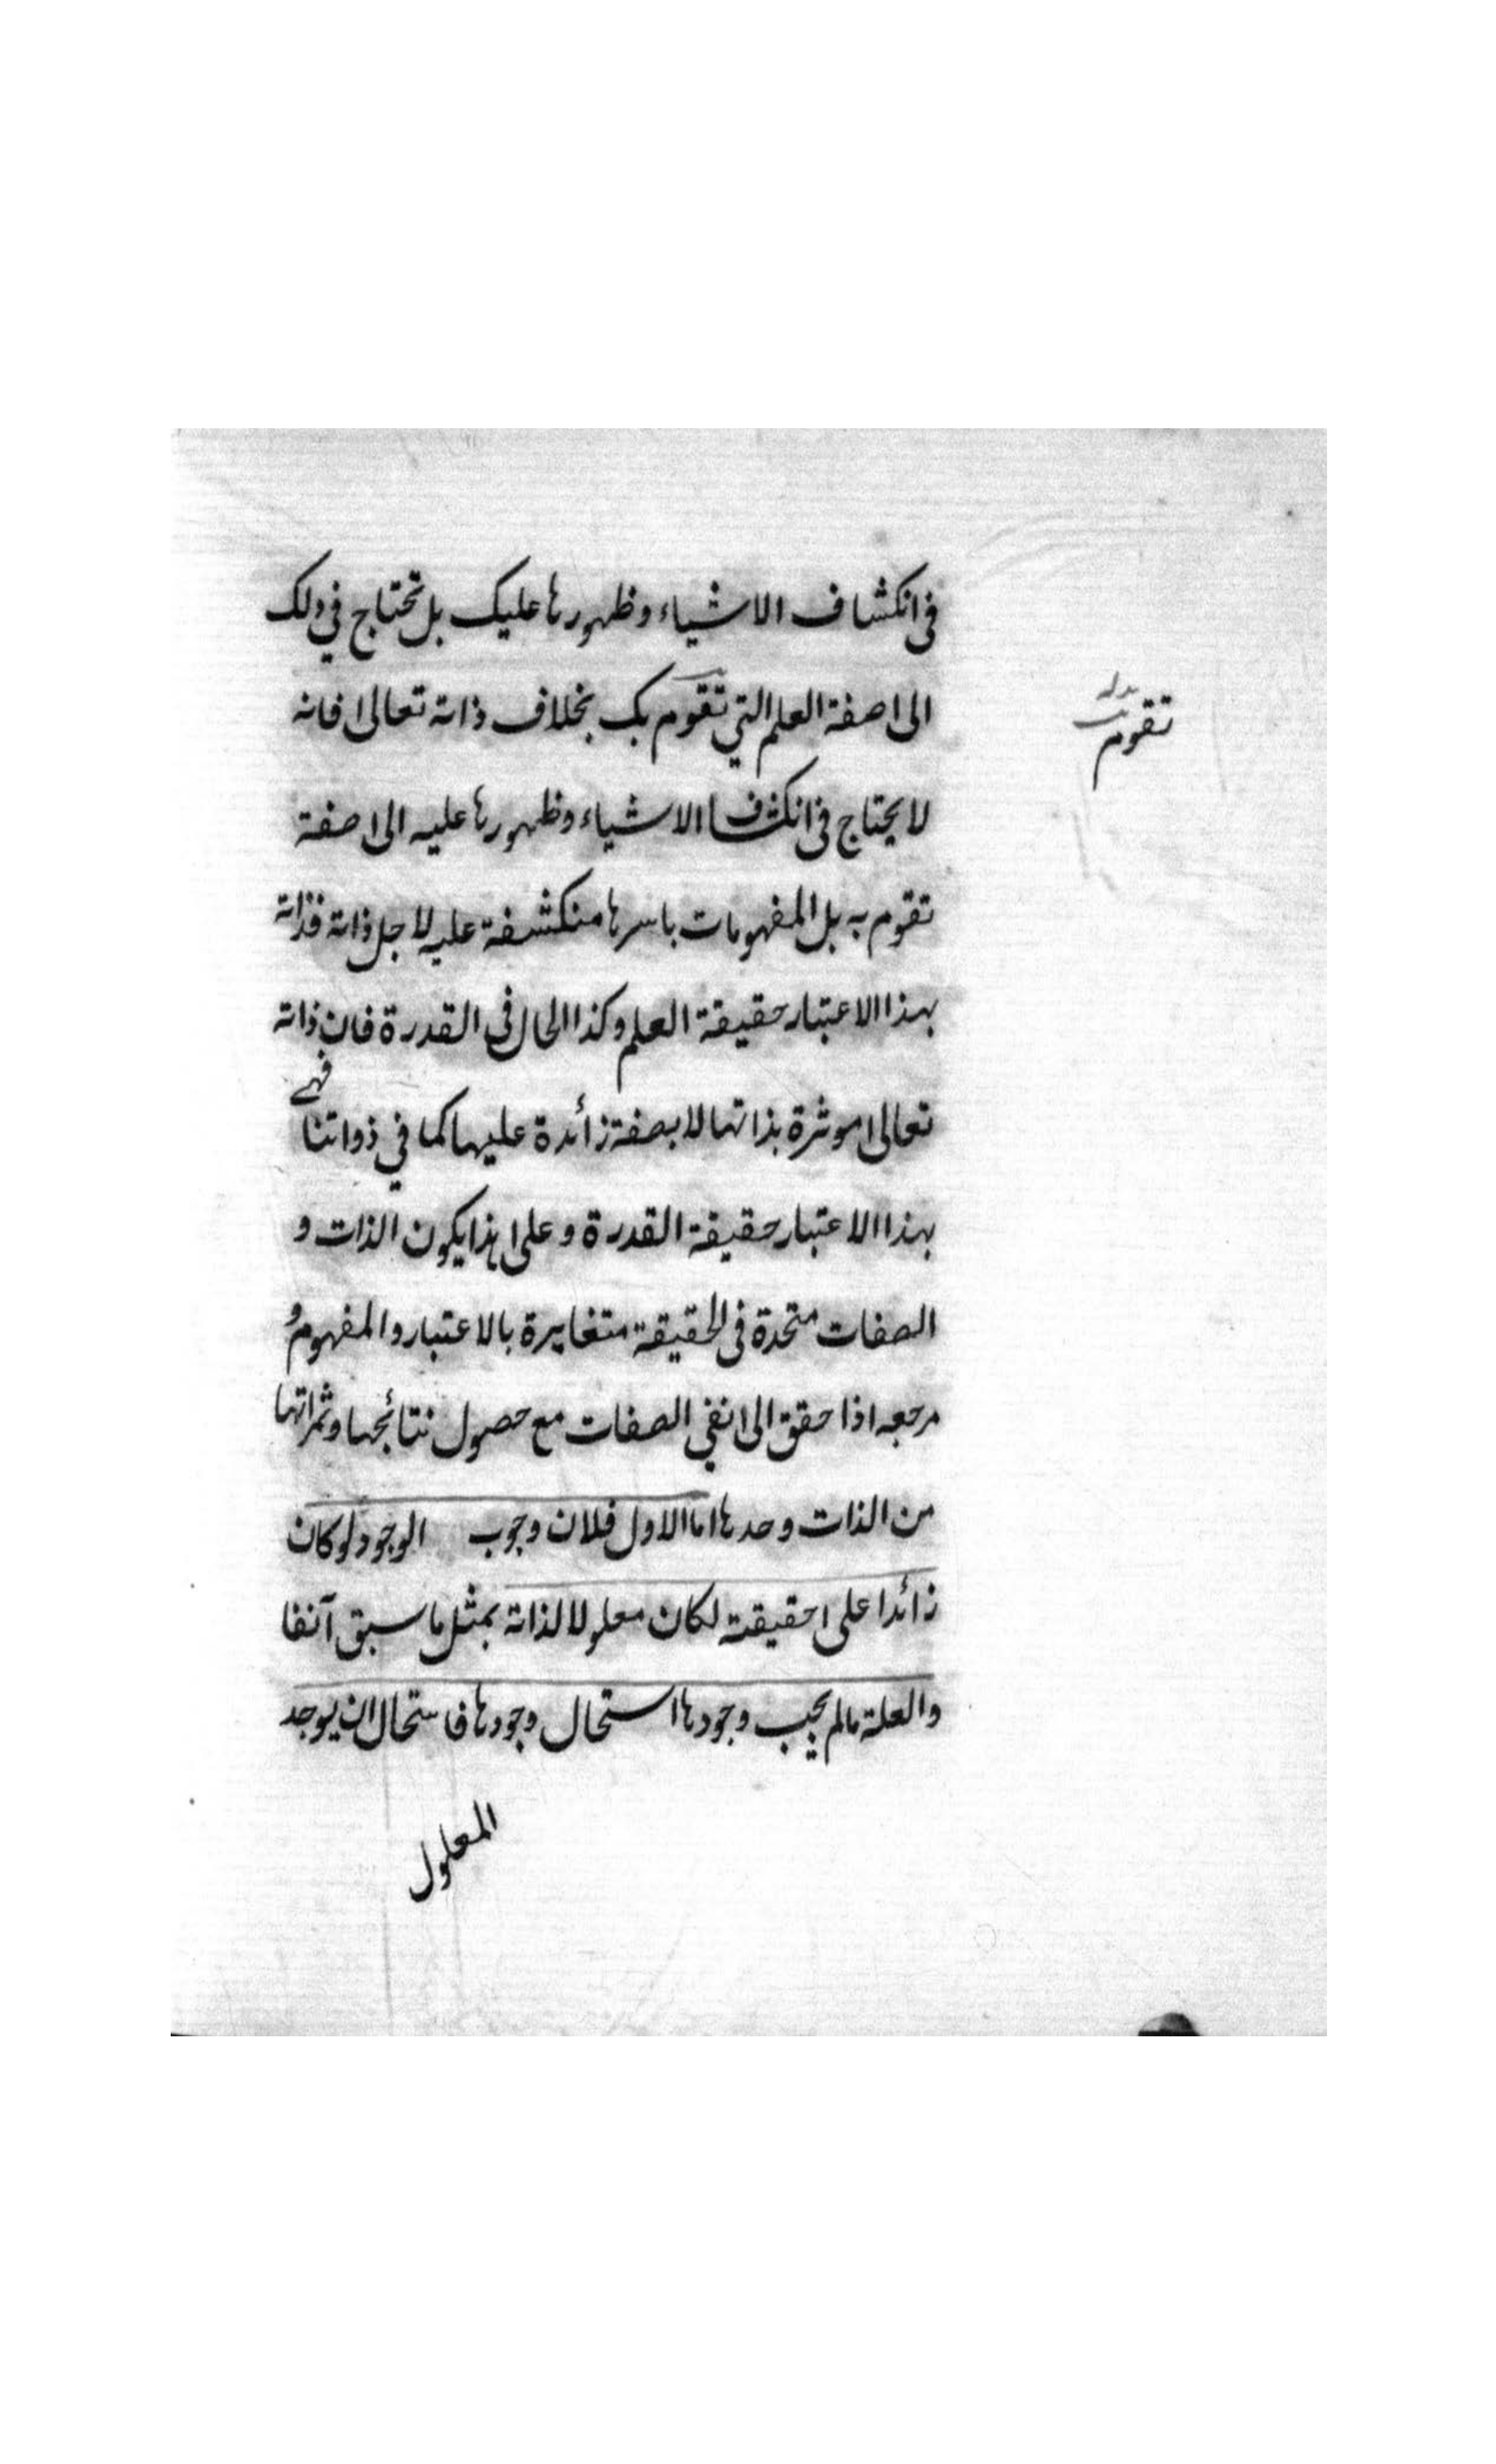 فى انكشاف الاشياء وظهورها عليك بل تحتاج في ذلك
الى صفة العلم التي تقوم بك بخلاف ذاته تعالى فانه
تقوم
لا يحتاج فى انكشاف الاشياء وظهورها عليه الى صفة
تقوم به بل المفهومات باسرها منكشفة عليه لاجل ذاته فذاته
بهذا الاعتبار حقيقة العلم وكذا الحال فى القدرة فان ذاته
تعالى موثرة بذاتها لا بصفة زائدة عليها كما في ذواتنا فهي
بهذا الاعتبار حقيقة القدرة وعلى هذا يكون الذات و
الصفات متحدة فى الحقيقة متغايرة بالاعتبار والمفهوم و
مرجعه اذا حقق الى نفي الصفات مع حصول نتائجها وثمراتها
من الذات وحدها اما الاول فلان وجوب الوجود لو كان
زائدا على حقيقته لكان معلولا لذاته بمثل ما سبق آنفا
والعلة مالم يجب وجودها استحال وجودها فاستحال ان يوجد
المعلول